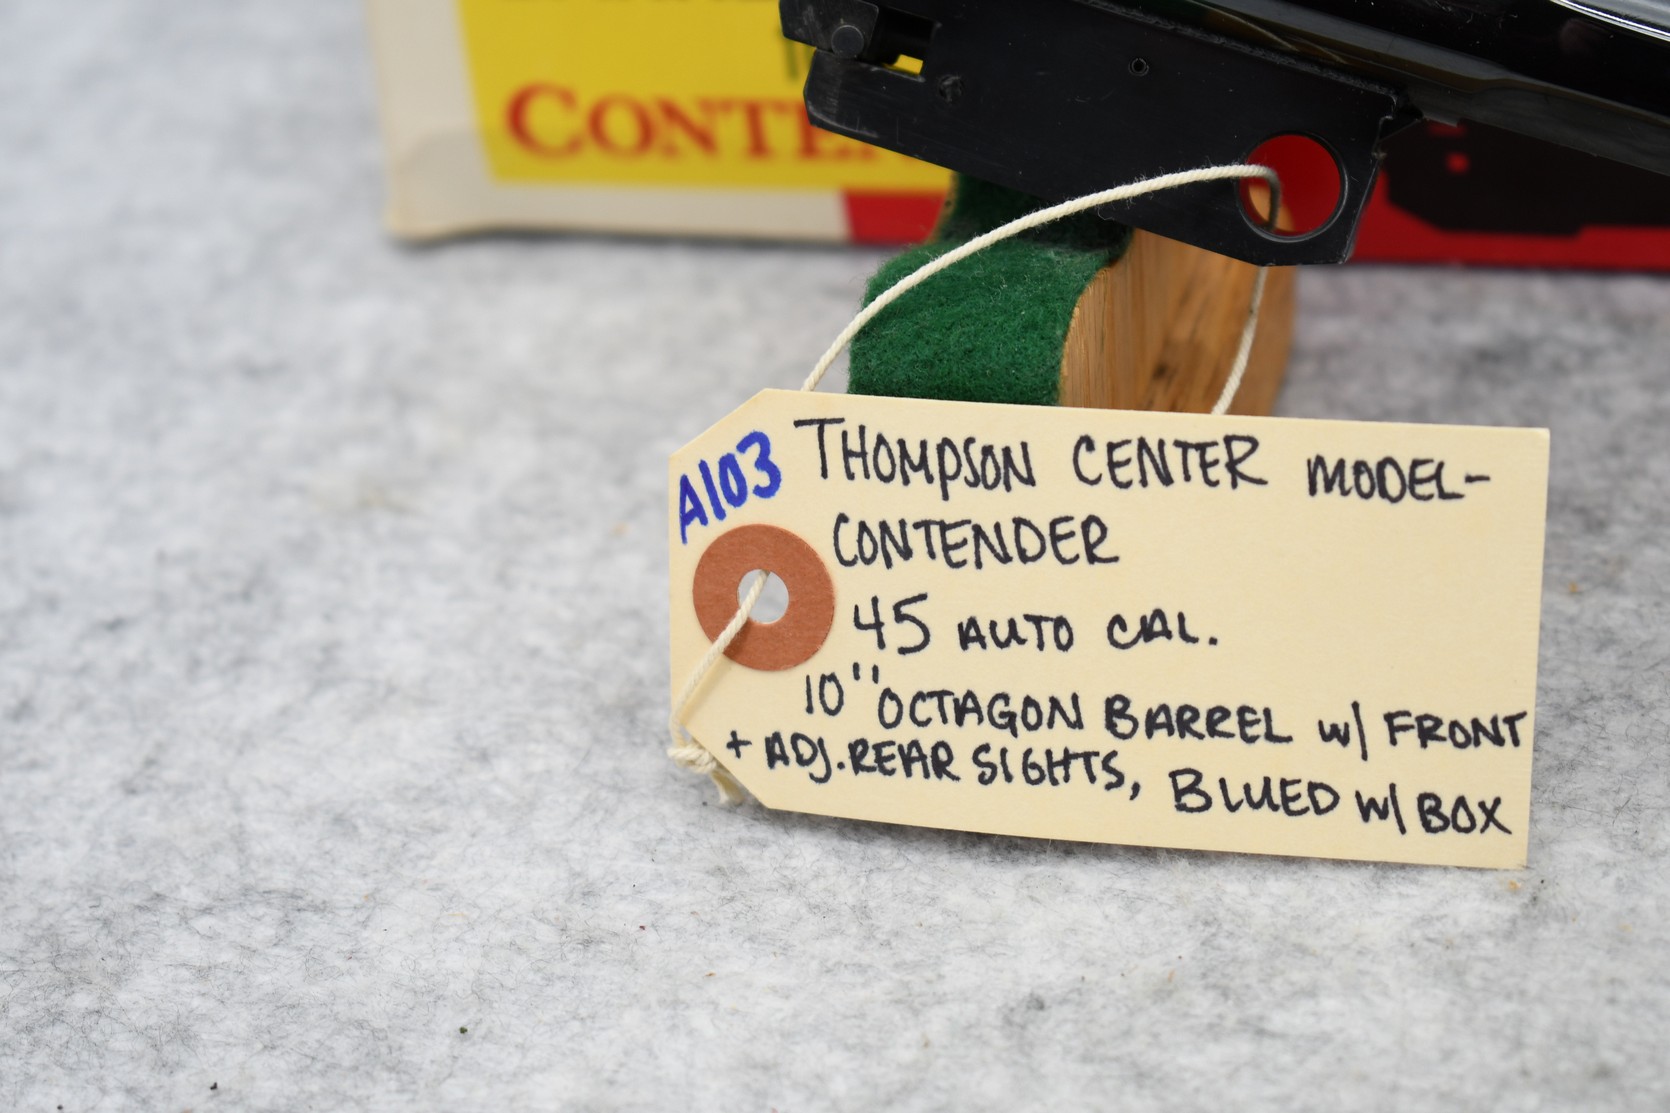 A103
THOMPSON CENTER MODEL-
CONTENDER
45 AUTO CAL.
10" OCTAGON BARREL w/ FRONT
+ ADJ. REAR SIGHTS, BLUED w/ BOX